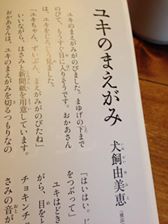 ユキのまえがみ
犬飼由美恵
ユキのまえがみがのびました。まゆげの下まで
のびて、もうすぐ目に入りそうです。おかあさん
は、ユキを
「ユキちゃん、ずいぶん、まえがみがのびたね」
といいながら、はさみと新聞紙を用意しています。
おかあさんは、ユキのまえがみを切るつもりなの
「はいはい
をつぶって」
ユキは
がら、目を
チョキン、チ
さみの音が